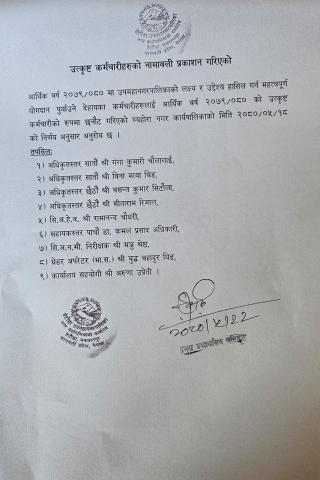 उत्कृष्ट कर्मचारीहरुको नामावली प्रकाशन गरिएको
आर्थिक वर्ष २०७९/०८० मा उपमहानगरपालिकाको लक्ष्य र उद्देश्य हासिल गर्न महत्वपूर्ण
योगदान पुर्याउने देहायका कर्मचारीहरुलाई आर्थिक वर्ष २०७९/०८० को उत्कृष्ट
कर्मचारीको रुपमा छनौट गरिएको व्यहोरा नगर कार्यपालिकाको मिति २०८०/०५/१८
को निर्णय अनुसार अनुरोध छ ।
तपसिल:
१) अधिकृतस्तर सातौं श्री गंगा कुमारी चौलागाई,
२) अधिकृतस्तर सातौं श्री बिना माया घिङ,
३) अधिकृतस्तर छैठौं श्री बसन्त कुमार सिटौला,
४) अधिकृतस्तर छैठौं श्री सीताराम रिमाल,
५) सि.अ.हे.व. श्री रामानन्द चौधरी,
६) सहायकस्तर पाचौं डा. कमल प्रसाद अधिकारी,
७) सि.अ.न.मी. निरीक्षक श्री मञ्जु श्रेष्ठ,
८) ग्रेडर अपरेटर (भा.स.) श्री बुद्ध बहादुर घिङ,
९) कार्यालय सहयोगी श्री अरुणा उप्रेती ।
२०८०/५/२२
प्रमुख प्रशासकीय अधिकृत